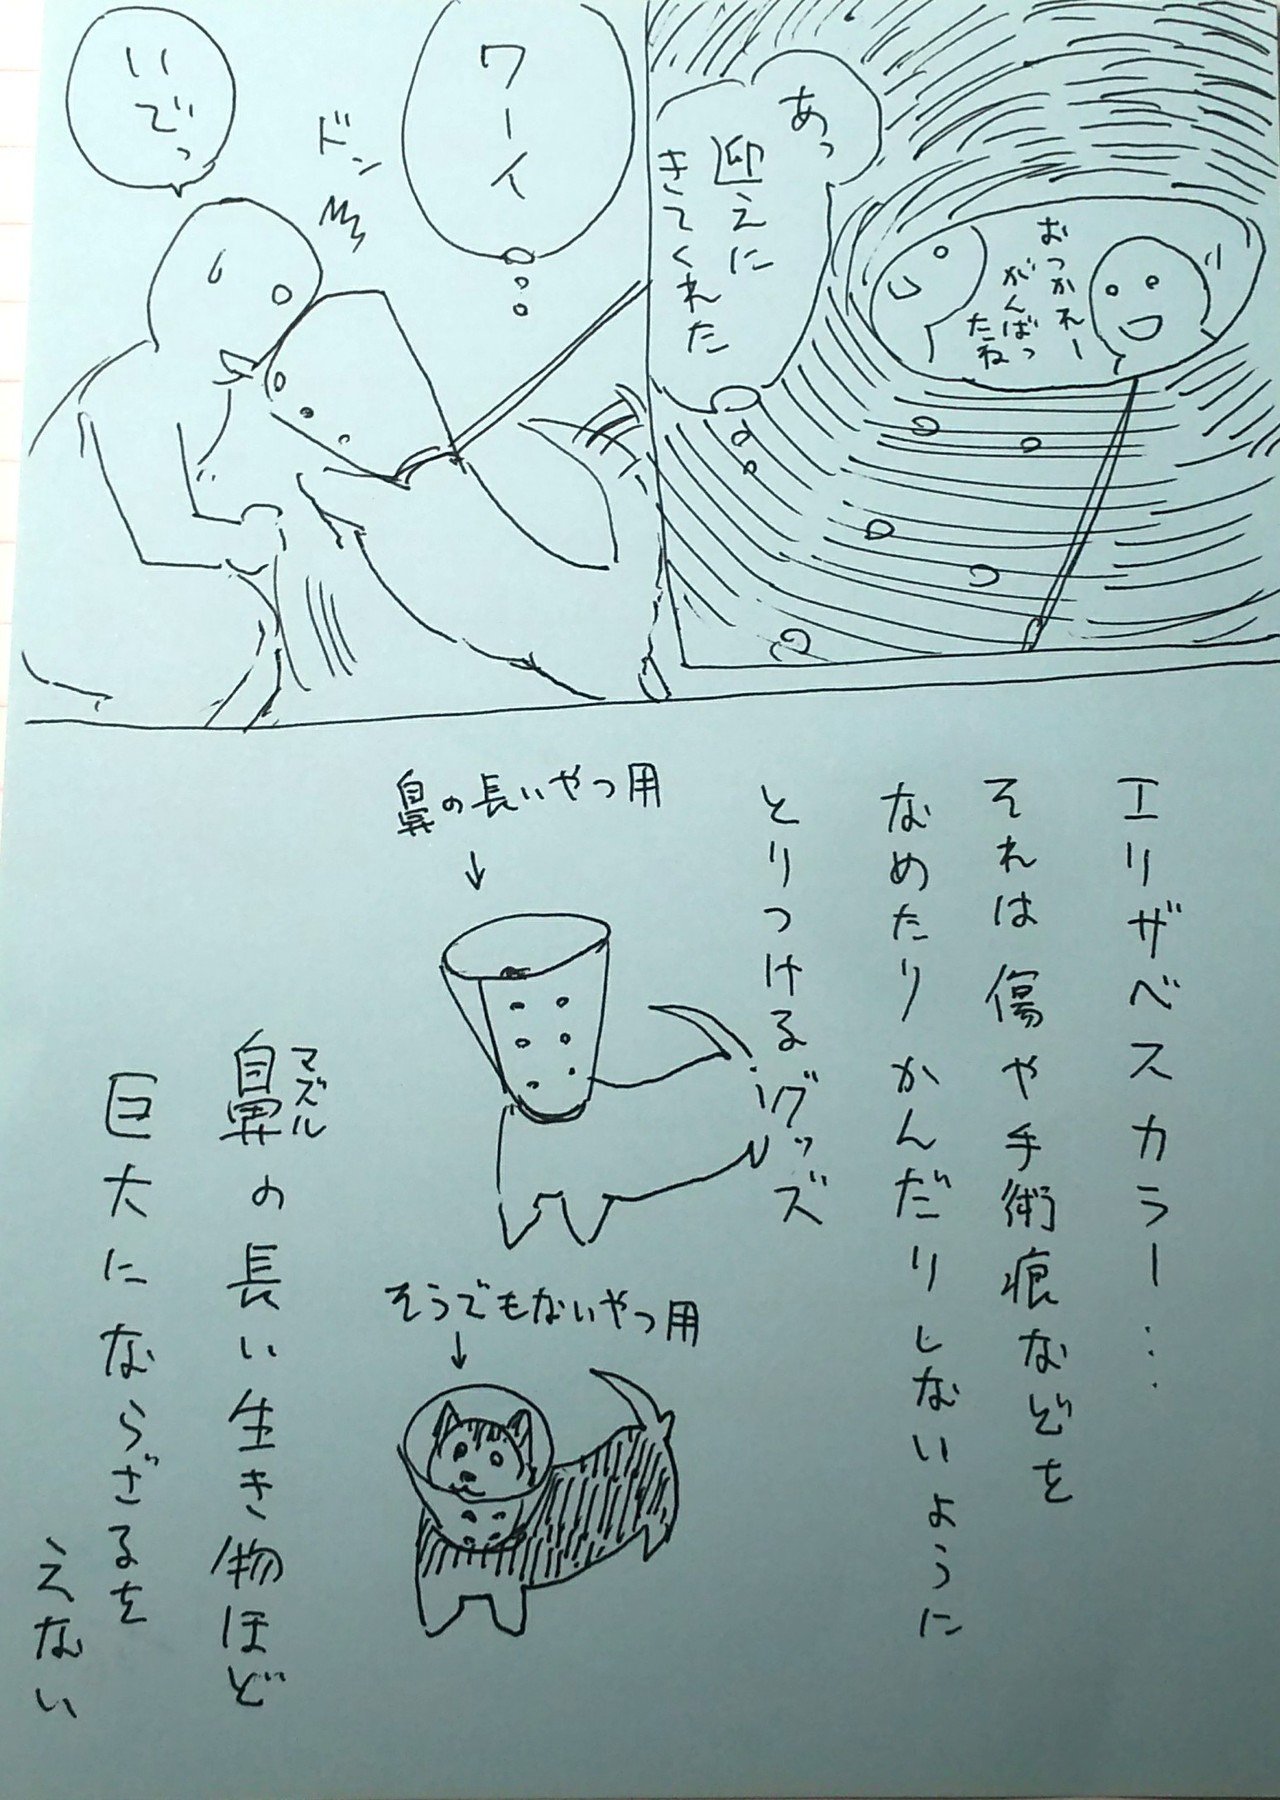 あっ
迎えに
きてくれた
おつかれー
がんばっ
たね
ワーイ
ドン
いでっ
エリザベスカラー…
それは傷や手術痕などを
なめたりかんだりしないように
とりつけるグッズ
鼻の長いやつ用
↓
そうでもないやつ用
↓
マズル
鼻の長い生き物ほど
巨大にならざるを
えない